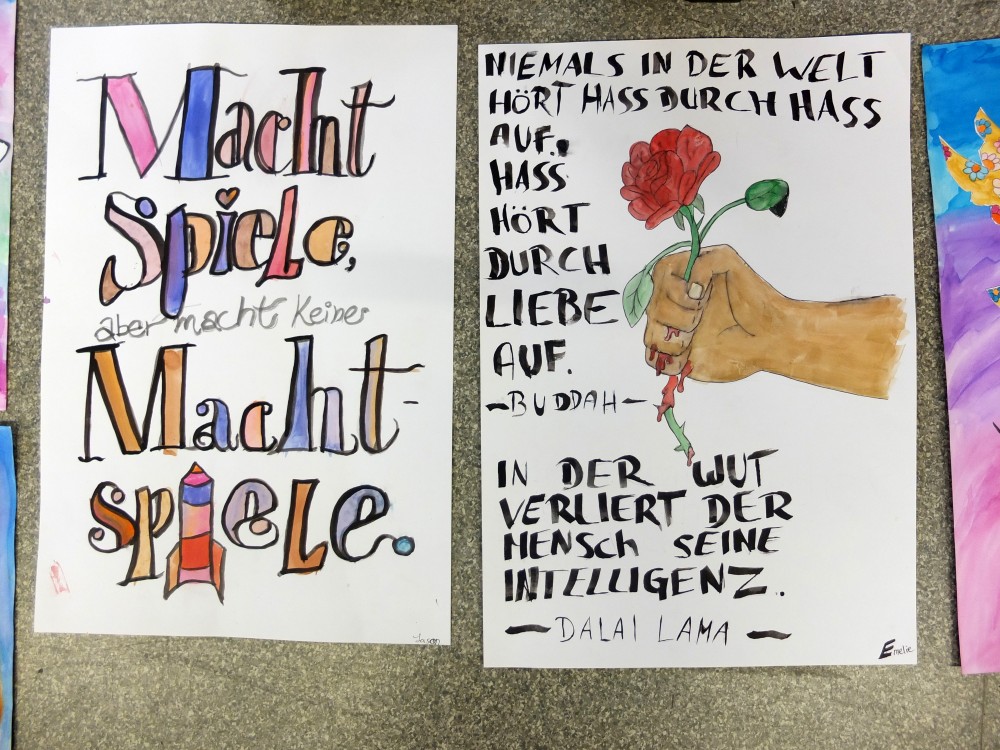 Macht
Spiele,
aber macht keine
Macht-
spiele.
Jason
NIEMALS IN DER WELT
HÖRT HASS DURCH HASS
AUF.
HASS
HÖRT
DURCH
LIEBE
AUF.
-BUDDAH-
IN DER WUT
VERLIERT DER
MENSCH SEINE
INTELLIGENZ..
- DALAI LAMA -
Emelie